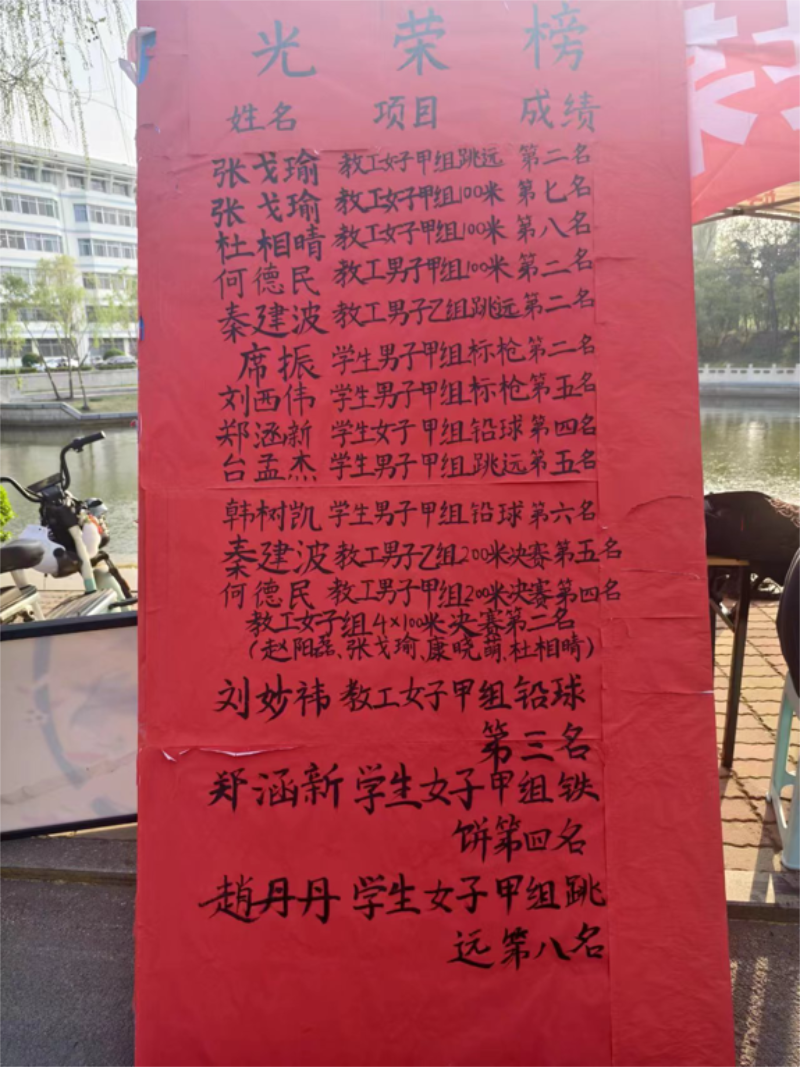 光荣榜
姓名 项目 成绩
张戈瑜 教工女子甲组跳远 第二名
张戈瑜 教工女子甲组100米 第七名
杜相晴 教工女子甲组100米 第八名
何德民 教工男子甲组100米 第二名
秦建波 教工男子乙组跳远 第二名
席振 学生男子甲组标枪 第二名
刘西伟 学生男子甲组标枪 第五名
郑涵新 学生女子甲组铅球 第四名
台孟杰 学生男子甲组跳远 第五名
韩树凯 学生男子甲组铅球 第六名
秦建波 教工男子乙组200米决赛 第五名
何德民 教工男子甲组200米决赛 第四名
教工女子组4×100米决赛第二名
(赵阳磊、张戈瑜、康晓萌、杜相晴)
刘妙祎 教工女子甲组铅球
第三名
郑涵新 学生女子甲组铁
饼第四名
趙丹丹 学生女子甲组跳
远第八名